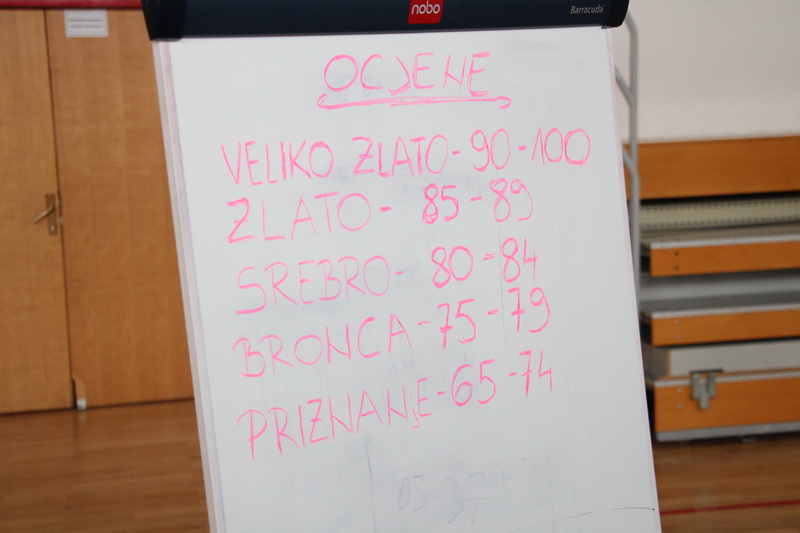 nobo
Barracuda
OCJENE
VELIKO ZLATO - 90 - 100
ZLATO - 85 - 89
SREBRO - 80 - 84
BRONCA - 75 - 79
PRIZNANJE - 65 - 74